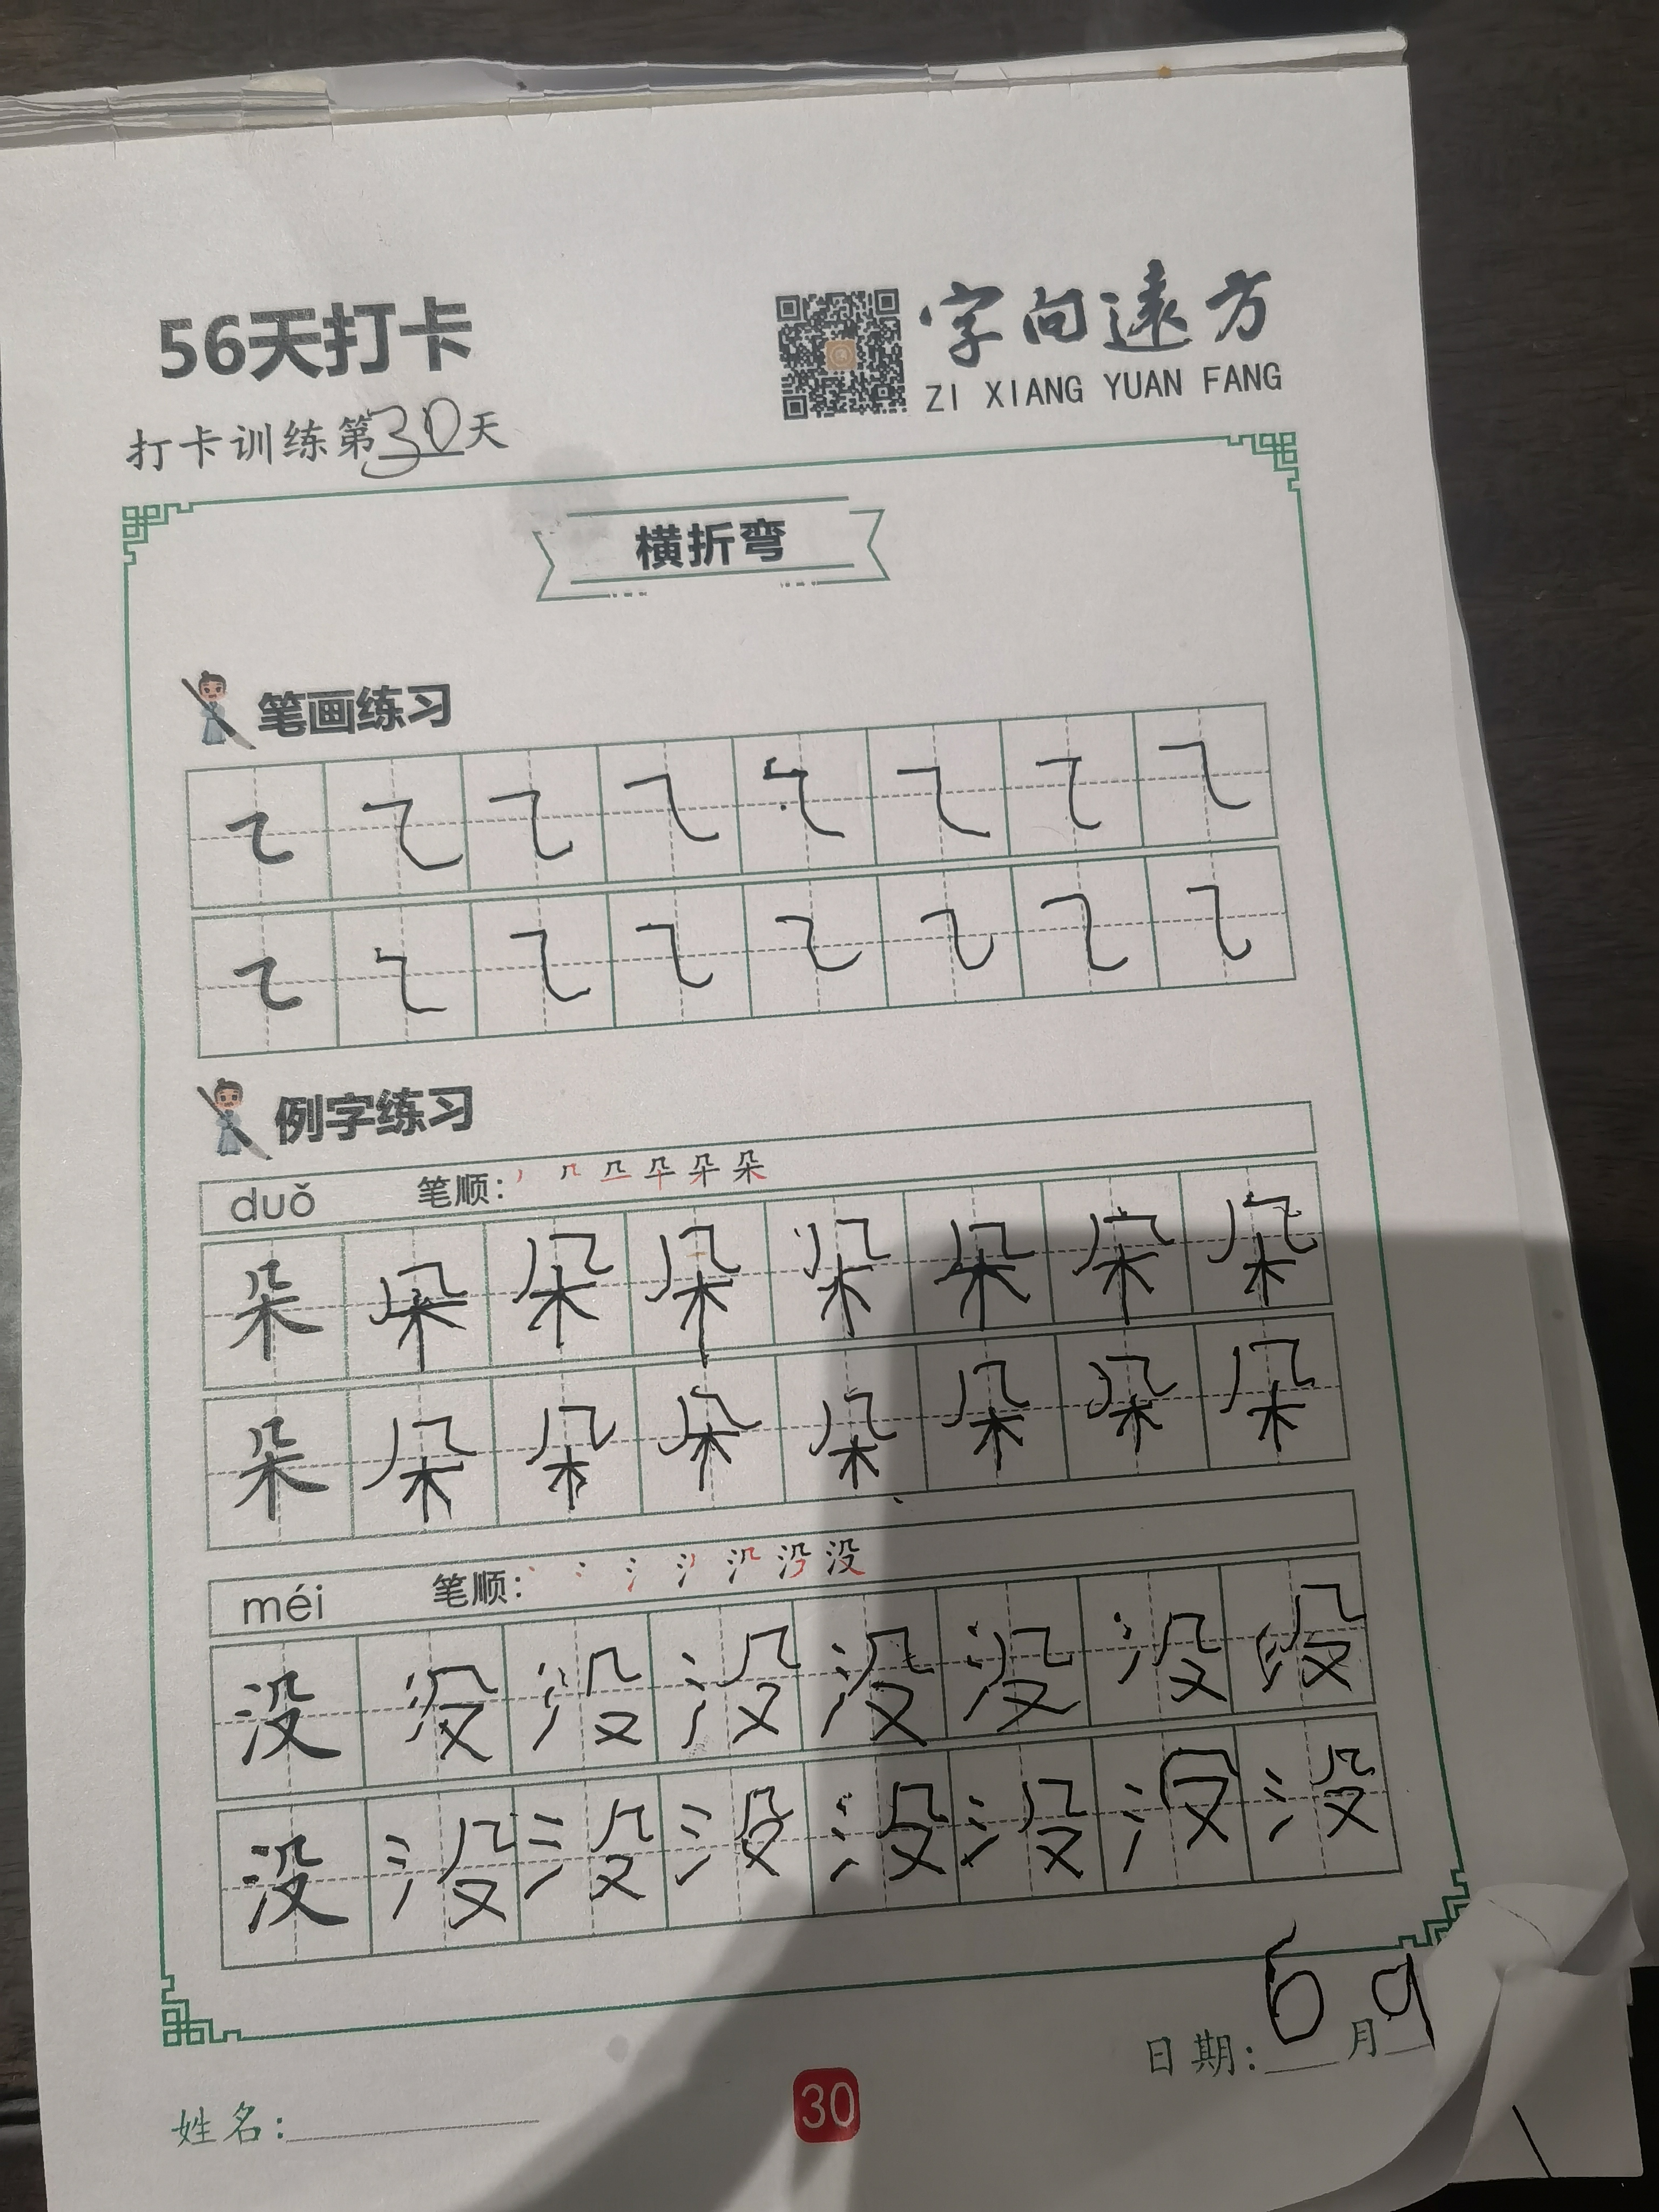 56天打卡
字向遠方
ZI XIANG YUAN FANG
打卡训练第30天
横折弯
笔画练习
㇍ ㇍ ㇍ ㇍ ㇍ ㇍ ㇍ ㇍
㇍ ㇍ ㇍ ㇍ ㇍ ㇍ ㇍ ㇍
例字练习
duǒ 笔顺:
朵 朵 朵 朵 朵 朵 朵 朵
朵 朵 朵 朵 朵 朵 朵 朵
méi 笔顺:
没 没 没 没 没 没 没 没
没 没 没 没 没 没 没 没
日期:6月9
姓名:
30